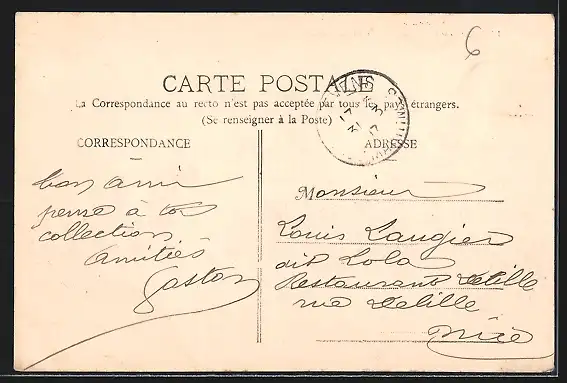 6
CARTE POSTALE
La Correspondance au recto n'est pas acceptée par tous les pays étrangers.
(Se renseigner à la Poste)
CORRESPONDANCE
ADRESSE
bon ami
pense à ta
collection
Amitiés
Gaston
Monsieur
Louis Laugier
dit Lola
Restaurant Delille
rue Delille
Nice